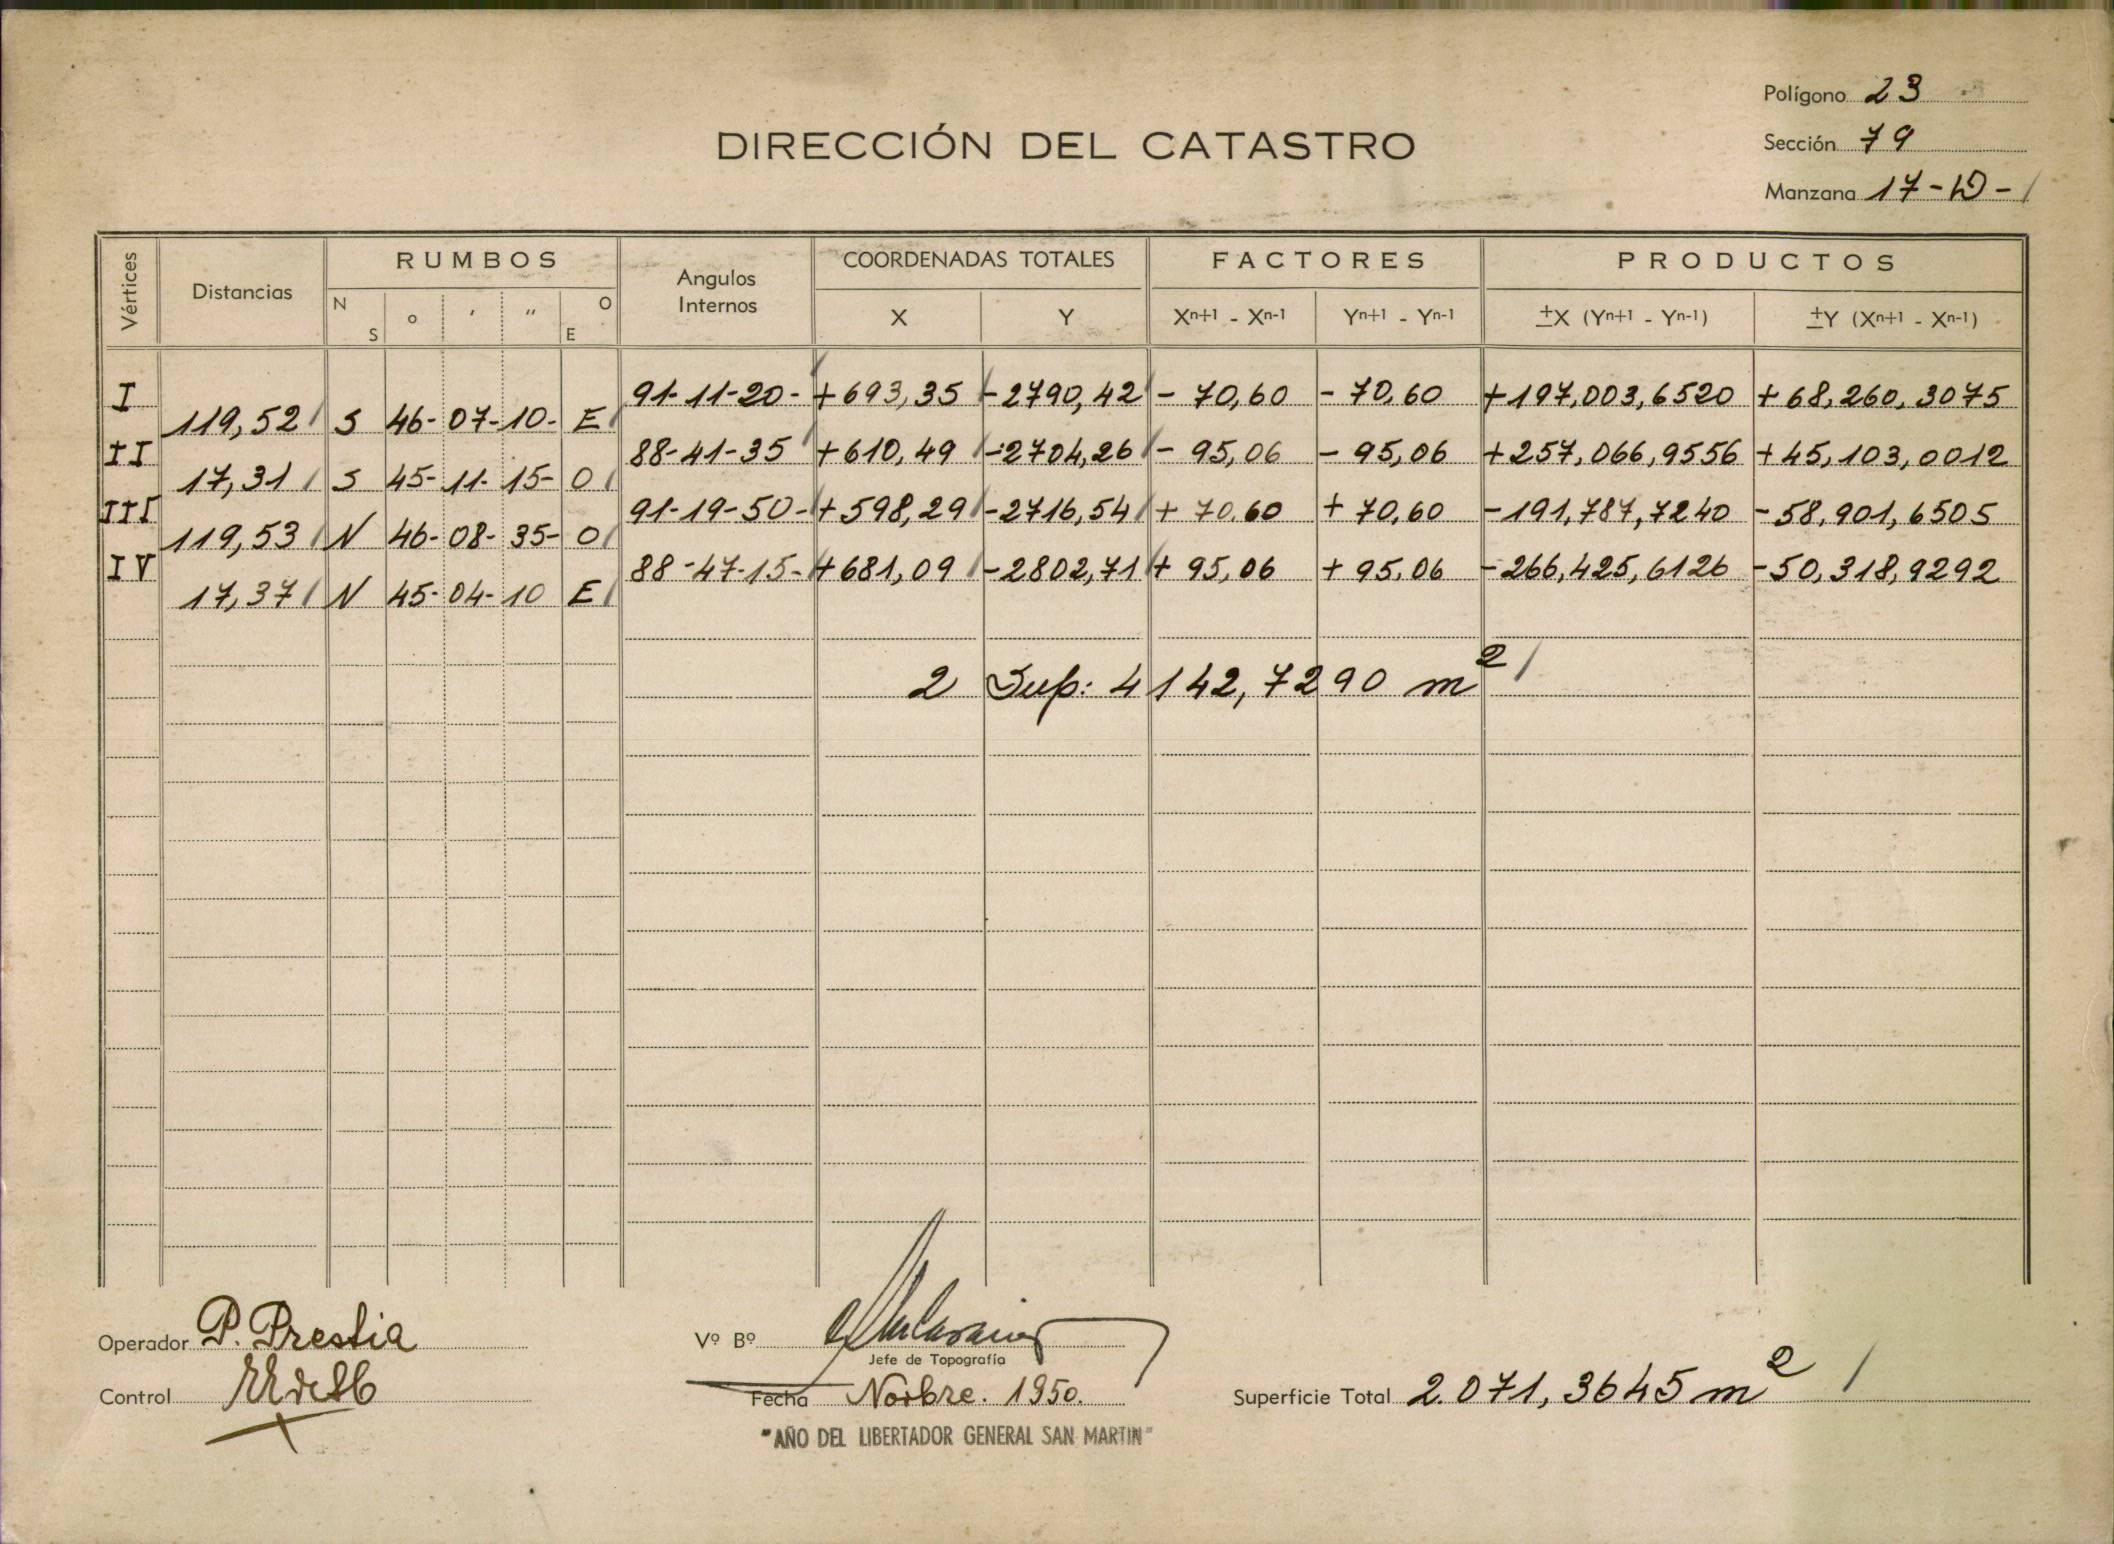 Polígono 23
DIRECCIÓN DEL CATASTRO
Sección 79
Manzana 17-D-
Vértices Distancias RUMBOS Angulos Internos COORDENADAS TOTALES FACTORES PRODUCTOS
N S o ′ ″ O E X Y Xn+1 - Xn-1 Yn+1 - Yn-1 ±X (Yn+1 - Yn-1) ±Y (Xn+1 - Xn-1)
I 91-11-20- +693,35 -2790,42 - 70,60 - 70,60 +197,003,6520 +68,260,3075
119,52 S 46- 07- 10- E
II 88-41-35 +610,49 -2704,26 - 95,06 - 95,06 +257,066,9556 +45,103,0012
17,31 S 45- 11- 15- O
III 91-19-50- +598,29 -2716,54 + 70,60 + 70,60 -191,787,7240 -58,901,6505
119,53 N 46- 08- 35- O
IV 88-47-15- +681,09 -2802,71 + 95,06 + 95,06 -266,425,6126 -50,318,9292
17,37 N 45- 04- 10 E
2 Sup: 4142,7290 m²
Operador P. Prestia
Vº Bº
Jefe de Topografía
Control
Fecha Novbre. 1950.
Superficie Total 2.071,3645 m²
"AÑO DEL LIBERTADOR GENERAL SAN MARTIN"